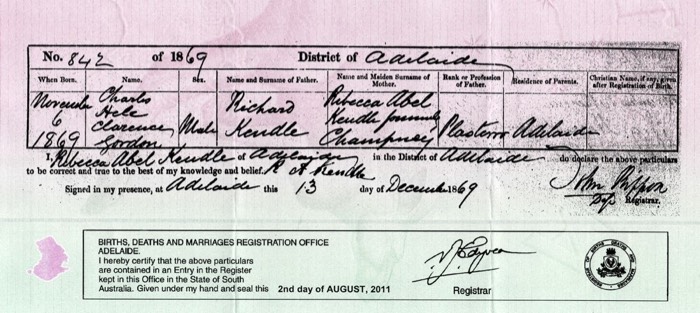 No. 842 of 1869 District of Adelaide
When Born. Name. Sex. Name and Surname of Father. Name and Maiden Surname of Mother. Rank or Profession of Father. Residence of Parents. Christian Name, if any, given after Registration of Birth.
November 6 1869 Charles Hele Clarence Gordon Male Richard Kendle Rebecca Abel Kendle formerly Champney Plasterer Adelaide
I, Rebecca Abel Kendle of Adelaide in the District of Adelaide do declare the above particulars
to be correct and true to the best of my knowledge and belief. R A Kendle
Signed in my presence, at Adelaide this 13 day of December 1869 John Registrar.
BIRTHS, DEATHS AND MARRIAGES REGISTRATION OFFICE
ADELAIDE.
I hereby certify that the above particulars
are contained in an Entry in the Register
kept in this Office in the State of South
Australia. Given under my hand and seal this 2nd day of AUGUST, 2011
Registrar